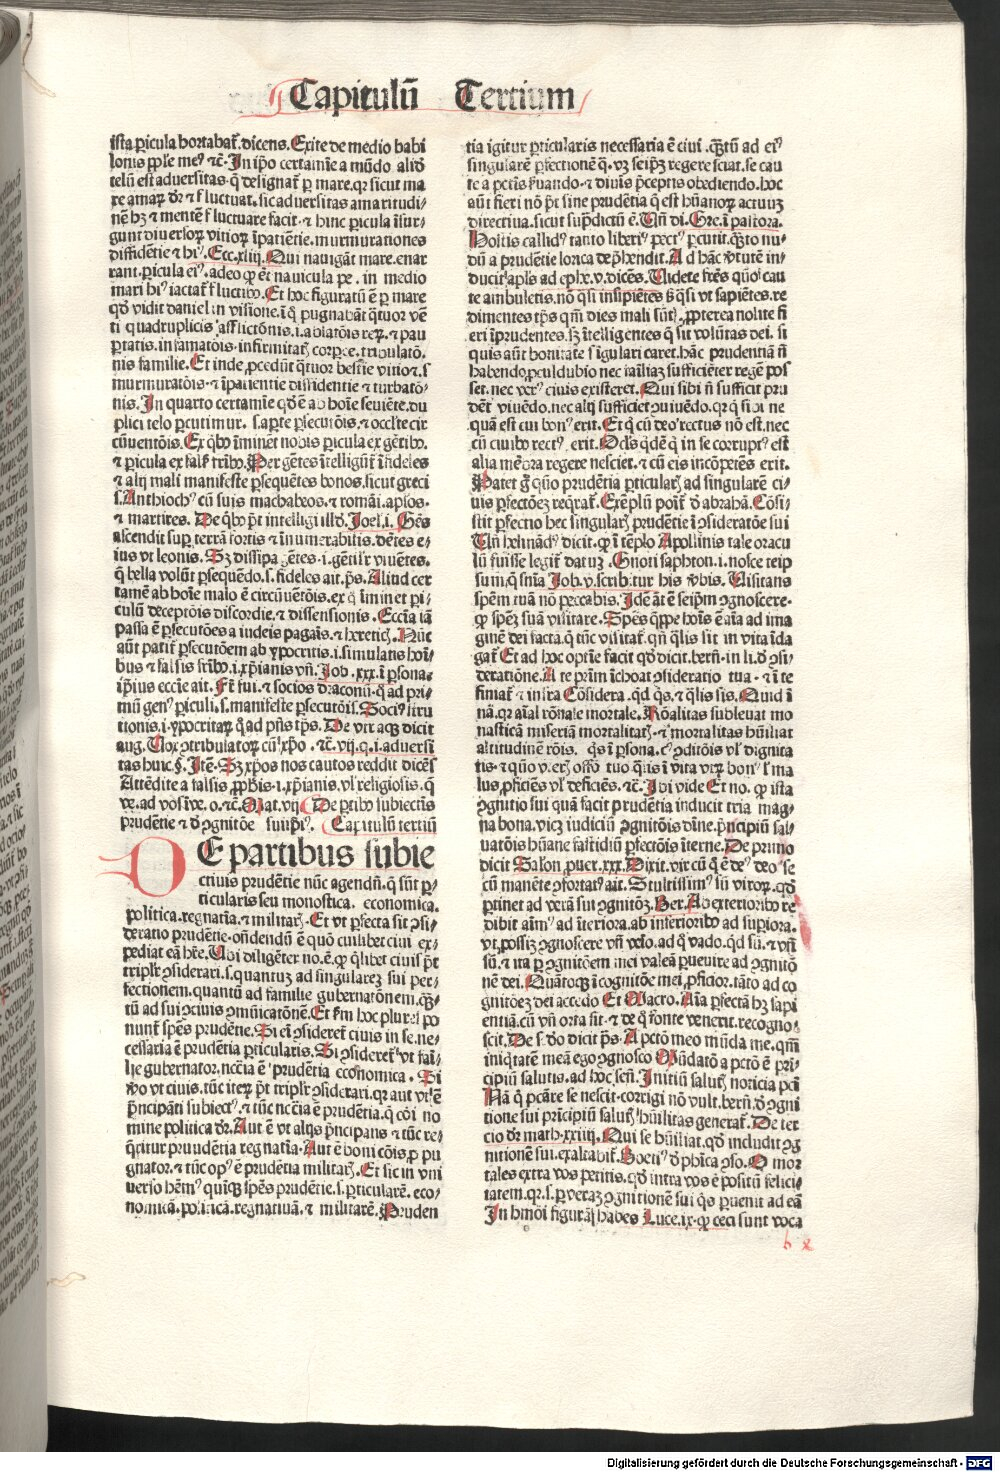 Capitulū Tertium
ista ꝑicula hortabat᷑. dicens. Exite de medio babi
lonis ppl̄e meꝰ ⁊c̄. In ip̄o certamīe a mūdo aliđ
telū est aduersitas. q̄ designat᷑ ꝑ mare. qr sicut ma
re amaꝝ dr̄ ⁊ f luctuat. sic aduersitas amaritudi-
nē hꝫ ⁊ mentē f luctuare facit. ⁊ hinc ꝑicula īsur-
gunt diuersoꝝ vitioꝝ īpatiētie. murmurationes
diffidētie ⁊ hꝰ. Ecc. xliij. Qui nauigāt mare. enar
rant. ꝑicula eiꝰ. adeo ꝙ ēt nauicula pe. in medio
mari hꝰ iactat᷑ f luctibꝰ. Et hoc figuratū ē ꝑ mare
qd̄ vidit daniel in visione. ī q̄ pugnabāt q̄tuor vē
ti quadruplicis afflictōnis. i. ablatōis reꝝ. ⁊ pau
ꝑtatis. infamatōis. infirmitatꝭ corꝑee. tribulatō-
nis familie. Et inde ꝓcedūt q̄tuor bestie vitioꝝ. s
murmuratōis. ⁊ īpatientie diffidentie ⁊ turbatō-
nis. In quarto certamīe qd̄ ē ab hoīe seuiēte. du
plici telo ꝑcutimur. s. aꝑte ꝑsecutōis. ⁊ occlte cir
cūuentōis. Ex qͥbꝰ īminēt nobis ꝑicula ex gētibꝰ.
⁊ ꝑicula ex falsꝭ fr̄ibꝰ. Per gētes ītelligūt᷑ īfideles
⁊ alij mali manifeste ꝑsequētes bonos. sicut greci
s. Anthiochꝰ cū suis machabeos. ⁊ romāi. apl̄os.
⁊ martires. De qͥbꝰ pt̄ intelligi illđ. Joel. i. Gēs
ascendit suꝑ terrā fortis ⁊ īnumerabilis. dētes e-
ius vt leonis. Sꝫ dissipa gētes. i. gētilr̄ viuētes.
q̄ bella volūt ꝑsequēdo. s. fideles ait. ps̄. Aliud cer
tamē ab hoīe malo ē circūuētōis. ex q̄ īminet pi-
culū deceptōis discordie. ⁊ dissensionis. Eccīa iā
passa ē ꝑsecutōes a iudeis paganīs. ⁊ hereticꝭ. Nūc
aūt patit᷑ ꝑsecutōem ab ypocritis. i. simulatis hoī-
bus ⁊ falsis fr̄ibꝰ. i. xp̄ianis vn̄. Job. xxx. ī ꝑsona
ip̄ius eccīe ait. Fr̄ fui. ⁊ socios draconū. q̄ ad pri-
mū genꝰ ꝑiculi. s. manifeste ꝑsecutōis. Sociꝰ stru
tionis. i. ypocritaꝝ q̄ ad pn̄s tp̄s. De vtraqꝫ dicit
aug. Vox ꝯtribulatoꝝ cū xp̄o. ⁊c̄. vij. q. i. aduersi
tas huic. §. Itē. Sꝫ xp̄os nos cautos reddit dicēs
Attēdite a falsis ꝓphis. i. xp̄ianis. vl̄ religiosis. q̄
ve. ad vos ī ve. o. ⁊c̄. Mat. vij. De ꝑtibꝰ subiectīs
prudētie ⁊ đ ꝯgnitōe suiip̄iꝰ. Capitulū tertiū
DE partibus subie
ctiuis prudētie nūc agendū. q̄ sūt ꝑ-
ticularis seu monostica. economica.
politica. regnatīa. ⁊ militarꝭ. Et vt ꝑfecta sit ꝯsi-
deratio prudētie. ōndendū ē quō cuilibet ciui ex-
pediat eā hr̄e. Vbi diligēter no. ē. ꝙ qͥlibet ciuis pt̄
triplr̄ ꝯsiderari. s. quantuꝫ ad singulareꝫ sui per-
fectionem. quantū ad familie gubernatōnem. qꝫ-
tū ad sui ꝯciuis ꝯmūicatōnē. Et fm hoc plures po
nunt᷑ spēs prudētie. Si eī ꝯsideret᷑ ciuis in se. ne-
cessaria ē prudētia ꝑticularis. Si ꝯsideret᷑ vt fai-
lie gubernator. nc̄cia ē prudētia economica. Si
ꝟo vt ciuis. tūc iteꝝ pt̄ triplr̄ ꝯsiderari. qr aut vt ē
pͥncipāti subiectꝰ. ⁊ tūc nc̄cia ē prudētia. q̄ cōi no
mine politica dr̄. Aut ē vt alijs pͥncipans ⁊ tūc re-
qͥritur pruudētia regnatīa. Aut ē boni cōis ꝓ pu
gnator. ⁊ tūc opꝰ ē prudētia militarꝭ. Et sic in vni
uerso hēmꝰ quīqꝫ spēs prudētie. s. ꝑticularē. eco-
nomicā. politicā. regnatiuā. ⁊ militarē. Pruden
tia igitur ꝑticularis necessaria ē ciui. qꝫtū ad eiꝰ
singularē ꝑfectionē q. vꝫ seipꝫ regere sciat. se cau
te a pctīs ẜuando. ⁊ diuīs p̄ceptis obediendo. hoc
aūt fieri nō pt̄ sine prudētia q̄ est hūanoꝝ actuuꝫ
directiua. sicut supdictū ē. Vn̄ di. Gre. ī pastora.
Hostis callidꝰ tanto liberiꝰ pectꝰ ꝑcutit. qꝫto nu-
dū a prudētie lorica dep̄hendit. Ad hāc ꝟtutē in-
ducit apl̄s ad eph̄e. v. dicēs. Videte fr̄es quō cau
te ambuletis. nō q̄si insipiētes sꝫ q̄si vt sapiētes. re
dimentes tp̄s. qm̄ dies mali sūt. ꝓpterea nolite fi
eri īprudentes. sꝫ ītelligentes q̄ sit volūtas dei. si
quis aūt bonitate sīgulari caret. hāc prudentiā n̄
habendo. ꝓculdubio nec familiaꝫ sufficiēter regē pos
set. nec verꝰ ciuis existeret. Qui sibi n̄ sufficit pru
dēt viuēdo. nec alij sufficiet ꝯuiuēdo. qr q̄ sibi ne
quā est cui bonꝰ erit. Et q̄ cū deo rectus nō est. nec
cū ciuibꝰ rectꝰ erit. Ocl̄s qͥdē q̄ in se corruptꝰ est
alia mēbra regere nesciet. ⁊ cū eis incōpetēs erit.
Patet g̊ quō prudētia ꝑticularꝭ ad singularē ci-
uis ꝑfectōeꝫ reqͥrat᷑. Exēplū poit᷑ đ abrahā. Cōsi-
stit ꝑfectio hec singularꝭ prudētie ī ꝯsideratōe sui
Vn̄ helinādꝰ dicit. ꝙ ī tēplo Apollinis tale oracu
lū fuisse legit᷑ datuꝫ. Gnoti saphton. i. nosce teip
sum. q̄ snīa Job. v. scribitur his ꝟbis. Visitans
spēm tuā nō peccabis. Idē āt ē seipm̄ ꝯgnoscere.
ꝙ spēꝫ suā visitare. Spēs qͥppe hoīs ē aīa ad ima
ginē dei facta. q̄ tūc visitat᷑. qn̄ q̄lis sit in vita īda
gat᷑. Et ad hoc optīe facit qd̄ dicit. berñ. in li. đ ꝯsi-
deratiōne. A te prīm īchoat ꝯsideratio tua. ⁊ ī te
finiat᷑ ⁊ infra Cōsidera. qd qͥs. ⁊ q̄lis sis. Quid ī
nā. qr aīal rōnale mortale. Rōalitas subleuat mo
nasticā miseriā mortalitatꝭ. ⁊ mortalitas hūiliat
altitudinē rōis. qͥs ī ꝑsona. cꝰ ꝯditōis vl̄ dignita
tis. ⁊ quō v. erꝭ offō tuo q̄lis ī vita vtꝝ bonꝰ l̄ ma
lus. ꝓficiēs vl̄ deficiēs. ⁊c̄. Ibi vide Et no. ꝙ ista
ꝯgnitio sui quā facit prudētia inducit tria mag-
na bona. vicꝫ iudiciū ꝯgnitōis dīne. pͥncipiū sal-
uatōis hūane fastidiū ꝑfectōis īterne. De primo
dicit Salon. ꝓuer. xxx. Dixit. vir cū q̄ ē deꝰ deo se
cū manēte ꝯfortatꝰ ait. Stultissimꝰ sū viroꝝ. qd̄
ꝑtinet ad verā sui ꝯgnitōꝫ. Ber. Ab exterioribꝰ re
dibit aīmꝰ ad īteriora. ab inferioribꝰ ad suꝑiora.
vt possiꝫ ꝯgnoscere vn̄ velo. ad q̄ vado. qd sū. ⁊ vn̄
sū. ⁊ ita ꝑ ꝯgnitōem mei valeā ꝑuenire ad ꝯgnitō
nē dei. Quātoqꝫ ī cognitōe mei ꝓficior. tāto ad co
gnitōeꝫ dei accedo Et Macro. Aīa ꝑfectā hꝫ sapi
entiā. cū vn̄ orta sit. ⁊ de q̄ fonte venerit. recogno-
scit. De. s. đo dicit ps̄. A pctō meo mūda me. qm̄
iniqͥtatē meā ego ꝯgnosco Mūdatō a pctō ē pri-
cipiū salutis. ad hoc scn̄. Initiū salutꝭ noticia pcī
Nā q̄ pcāre se nescit. corrigi nō vult. berñ. đ ꝯgni
tione sui principiū salutꝭ hūilitas generat᷑. De ter
cio dr̄ math. xxiij. Qui se hūiliat. qd̄ includit ꝯg
nitionē sui. exaltabit᷑. Boetiꝰ đ phīca ꝯso. O mor
tales extra vos petitis. qd̄ intra vos ē positū felici
tatem. qr. s. ꝑ veraꝫ ꝯgnitionē sui qͥs ꝑuenit ad eā
In hmōi figurāꝫ habes Luce. ix. ꝙ ceci sunt voca
b x
Digitalisierung gefördert durch die Deutsche Forschungsgemeinschaft - DFG